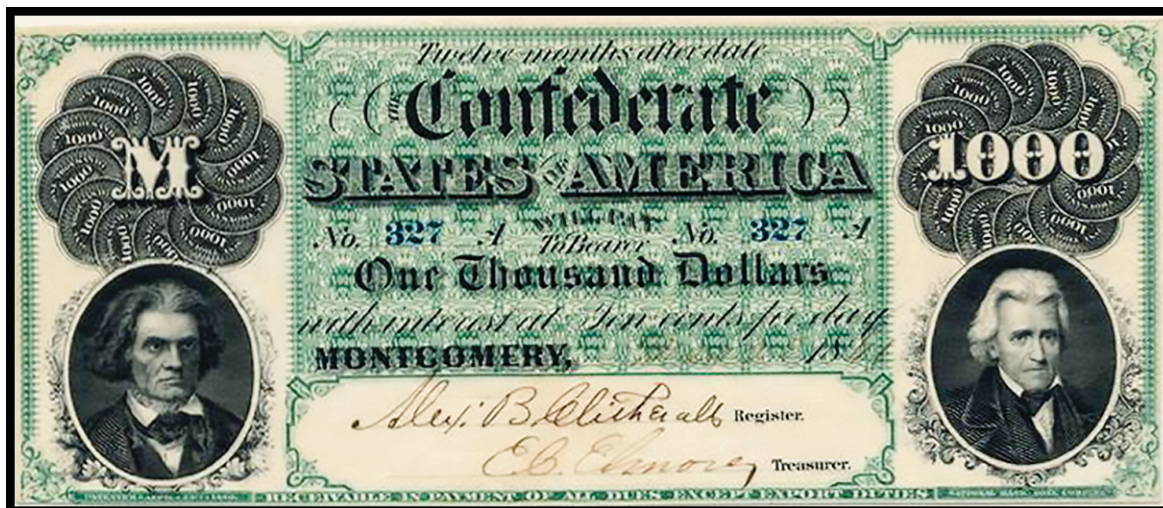 Twelve months after date
THE Confederate
STATES OF AMERICA
M
1000
WILL PAY
No. 327 A To Bearer No. 327 A
One Thousand Dollars
with interest at Ten cents per day
MONTGOMERY, 18
Alex. B. Clitherall Register.
E.C. Elmore, Treasurer.
RECEIVABLE IN PAYMENT OF ALL DUES EXCEPT EXPORT DUTIES
NATIONAL BANK NOTE COMPANY